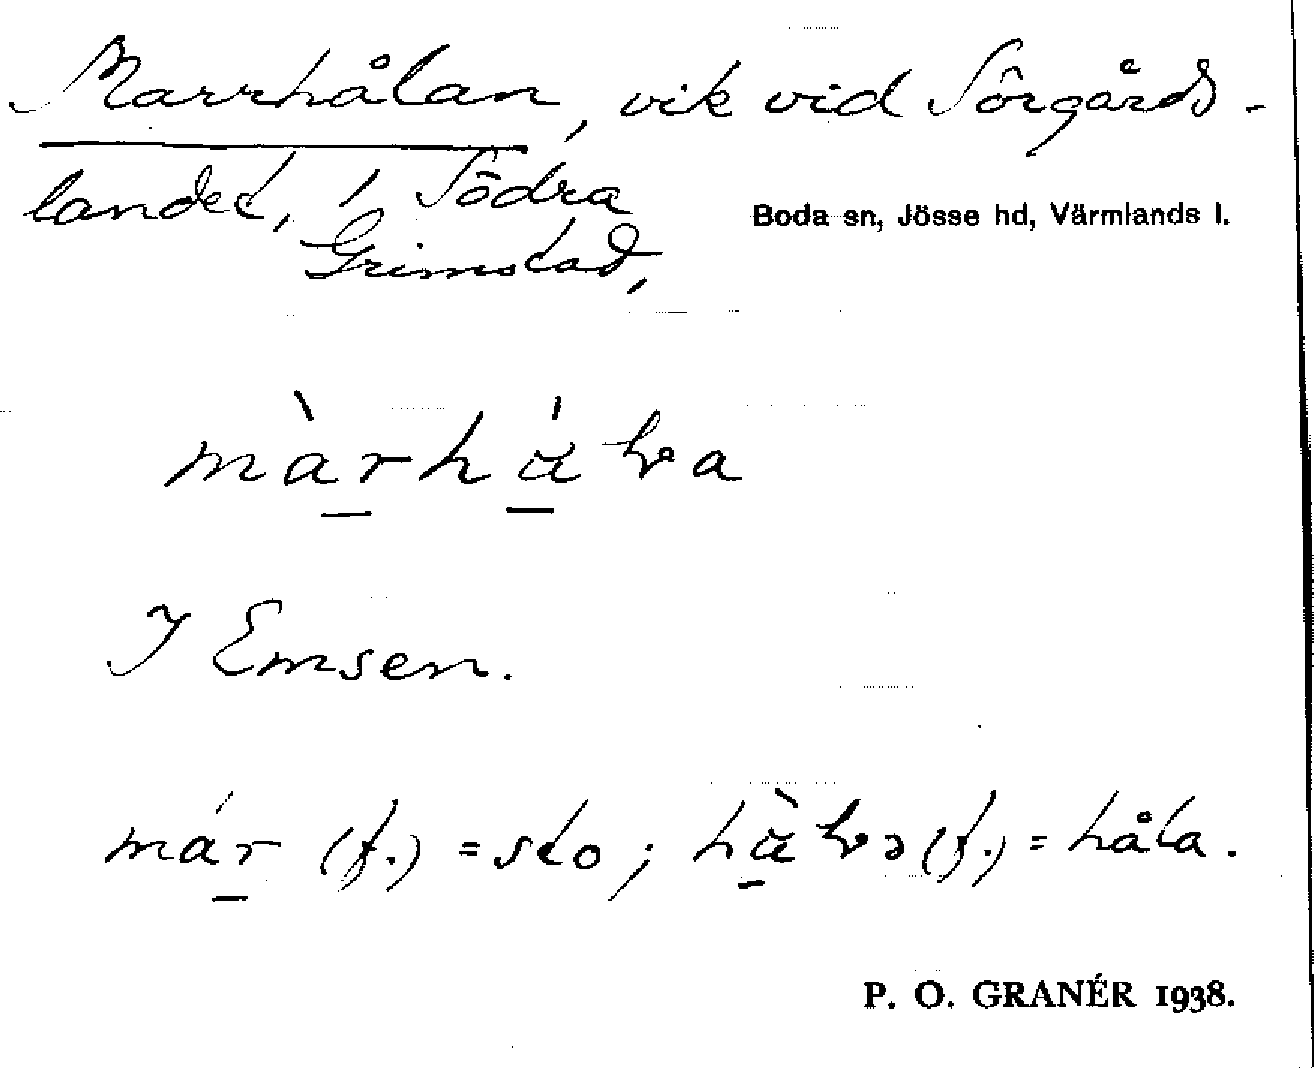 Marrhålan, vik vid Sörgårds-
landet, i Södra
Grimstad,
Boda sn, Jösse hd, Värmlands l.
I Emsen.
már (f.) = sto; (f.) = håla.
P. O. GRANÉR 1938.